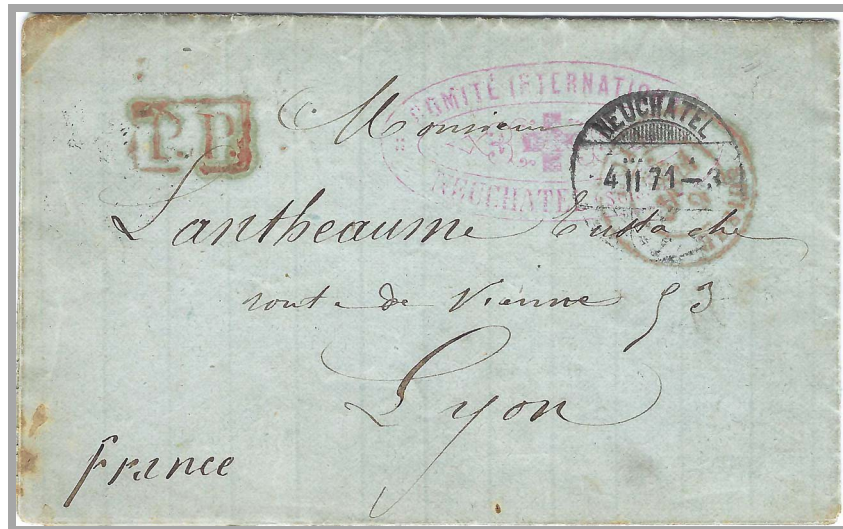 COMITÉ INTERNATIO
NEUCHATEL
P.P.
NEUCHATEL
4 II 71 – 3
Monsieur
Lantheaume Eustache
route de Vienne 53
Lyon
France